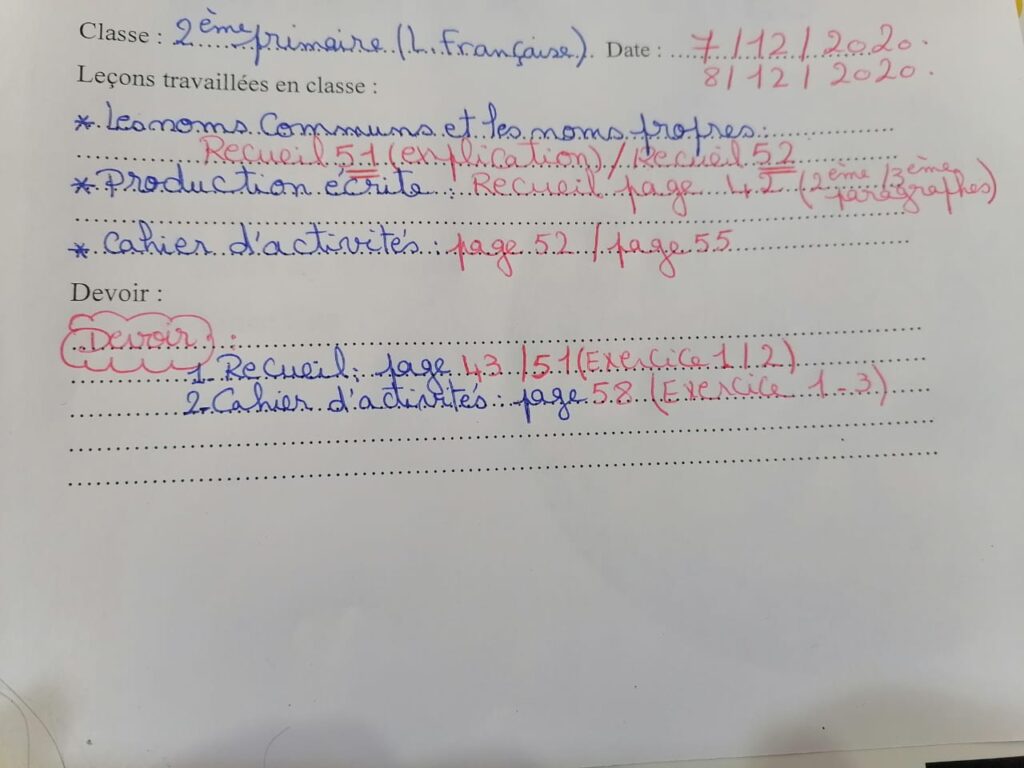 Classe : 2ème primaire (L. Française). Date : 7/12/2020.
8/12/2020.
Leçons travaillées en classe :
* Les noms communs et les noms propres :
Recueil 51 (explication) / Recueil 52
* Production écrite : Recueil page 42 (2ème/3ème
paragraphes)
* Cahier d'activités : page 52 / page 55
Devoir :
Devoir :
1. Recueil : page 43 / 51 (Exercice 1/2)
2- Cahier d'activités : page 58 (Exercice 1-3)